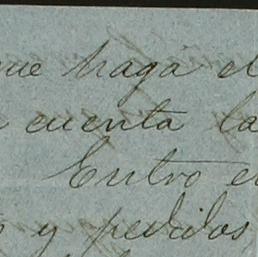 que haga el
cuenta la
Entro e
y pedidos